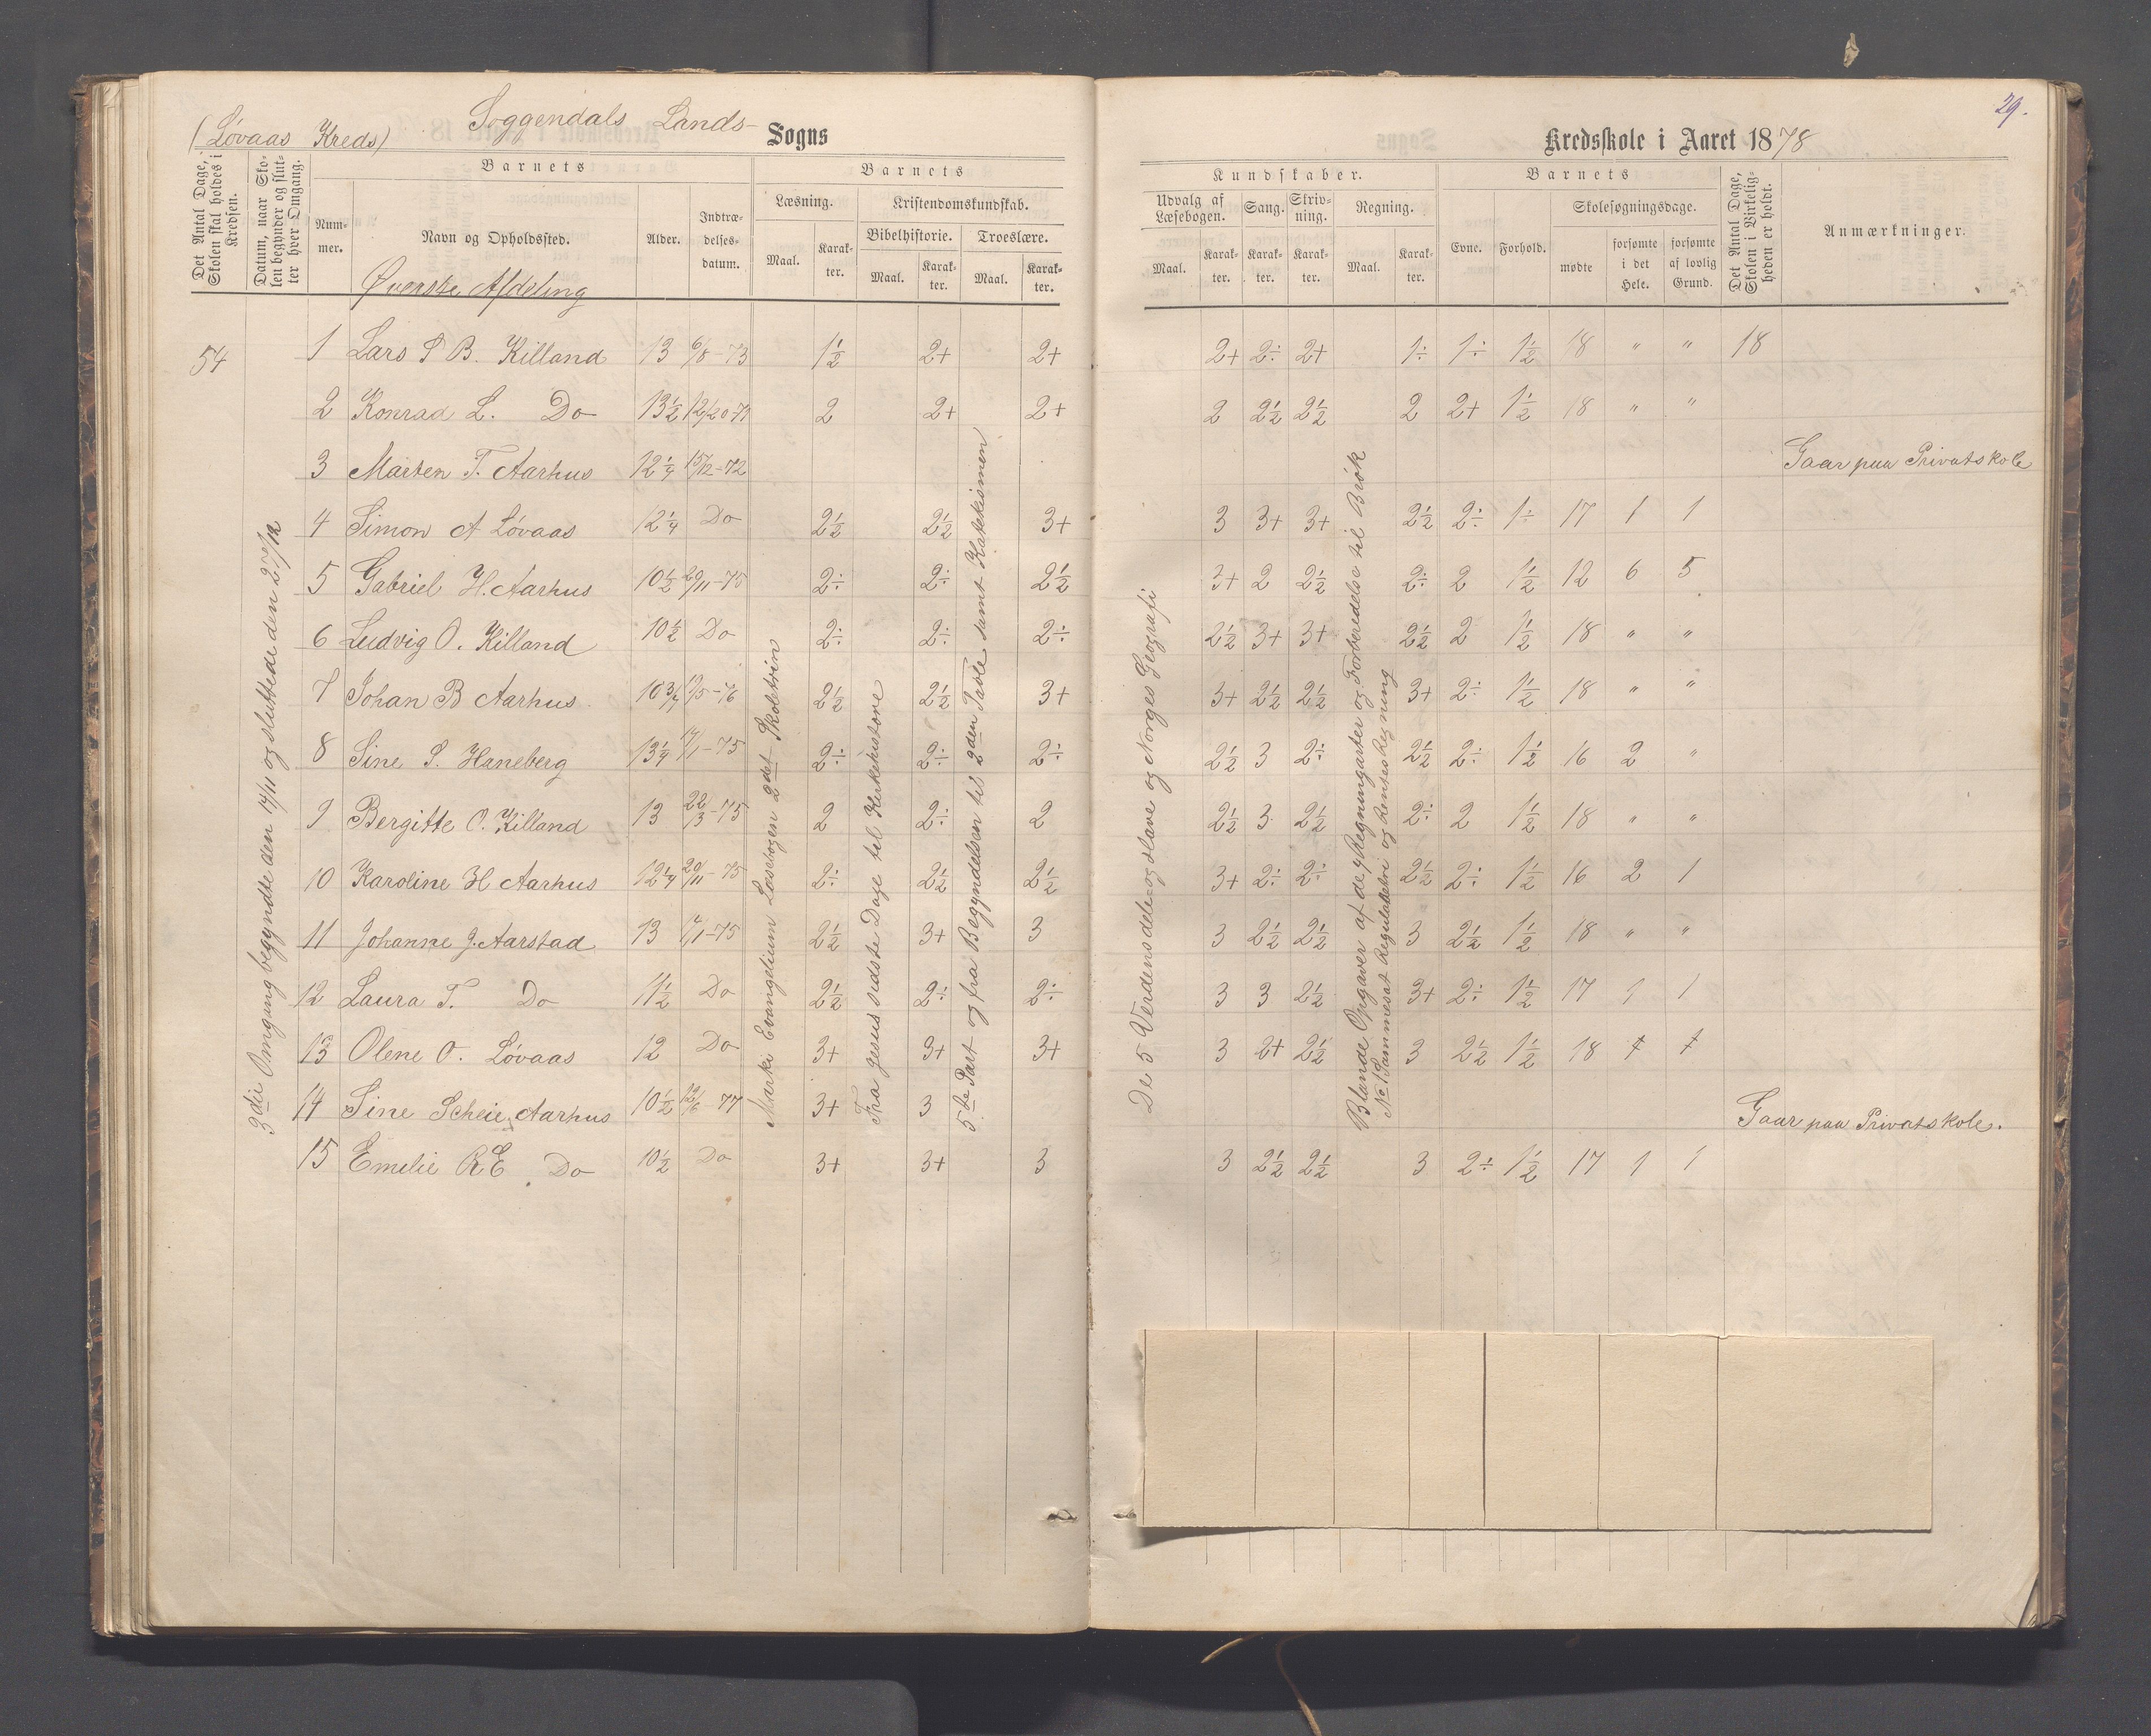 29.
(Løvaas Kreds) Soggendals Lands- Sogns Kredsskole i Aaret 1878
Det Antal Dage, Skolen skal holdes i Kredsen.
Datum, naar Skolen begynder og slutter hver Omgang.
Barnets
Nummer.
Navn og Opholdssted.
Alder.
Indtrædelsesdatum.
Barnets
Læsning.
Maal. Karakter.
Kristendomskundskab.
Bibelhistorie. Troeslære.
Maal. Karakter. Maal. Karakter.
Kundskaber.
Udvalg af Læsebogen. Sang. Skrivning. Regning.
Maal. Karakter. Karakter. Karakter. Maal. Karakter.
Barnets
Evne. Forhold. Skolesøgningsdage.
mødte forsømte i det Hele. forsømte af lovlig Grund.
Det Antal Dage, Skolen i Virkeligheden er holdt.
Anmærkninger.
Øverste Afdeling
54 1 Lars S B. Killand 13 6/8-73 1½ 2+ 2+ 2+ 2÷ 2+ 1÷ 1÷ 1½ 18 " " 18
2 Konrad L. Do 13½ 2 2+ 2+ 2 2½ 2½ 2 2+ 1½ 18 " "
3 Marten T. Aarhus 12¼ 15/12-72 Gaar paa Privatskole
4 Simon A Løvaas 12¼ Do 2½ 2½ 3+ 3 3+ 3+ 2½ 2÷ 1÷ 17 1 1
5 Gabriel H. Aarhus 10½ 29/11-75 2÷ 2÷ 2½ 3+ 2 2½ 2÷ 2 1½ 12 6 5
6 Ludvig O. Killand 10½ Do 2÷ 2÷ 2÷ 2½ 3+ 3+ 2½ 2 1½ 18 " "
7 Johan B Aarhus 10¾ 2½ 2½ 3+ 3+ 2½ 2½ 3+ 2÷ 1½ 18 " "
8 Sine S. Haneberg 13¼ 2÷ 2÷ 2÷ 2½ 3 2÷ 2½ 2÷ 1½ 16 2 "
9 Bergitte O. Killand 13 22/3-75 2 2÷ 2 2½ 3 2½ 2÷ 2 1½ 18 " "
10 Karoline H Aarhus 12¼ 29/11-75 2÷ 2½ 2½ 3+ 2÷ 2÷ 2½ 2÷ 1½ 16 2 1
11 Johanne J. Aarstad 13 2½ 3+ 3 3 2½ 2½ 3 2½ 1½ 18 " "
12 Laura T. Do 11½ Do 2½ 2÷ 2÷ 3 3 2½ 3+ 2÷ 1½ 17 1 1
13 Olene O. Løvaas 12 Do 3+ 3+ 3+ 3 2+ 2½ 3 2½ 1½ 18
14 Sine Scheie, Aarhus 10½ 12/6-77 3+ 3 Gaar paa Privatskole.
15 Emelie R E. Do 10½ Do 3+ 3+ 3 3 2½ 2½ 3 2÷ 1½ 17 1 1
3die Omgang begyndte den 14/11 og sluttede den
Marki Evangelium Læsebogen 2det Skoletrin
Fra Jesus sidste Dage til Kirkehistorie
5te Part og fra Begyndelsen til 2den Tavle samt Katekismen
De 5 Verdensdele og Have og Norges Geografi
Blande Opgaver af de 4 Regningarter og Forberedelse til Brøk
No 1 Sammesat Reguladetri og Rentes Regning